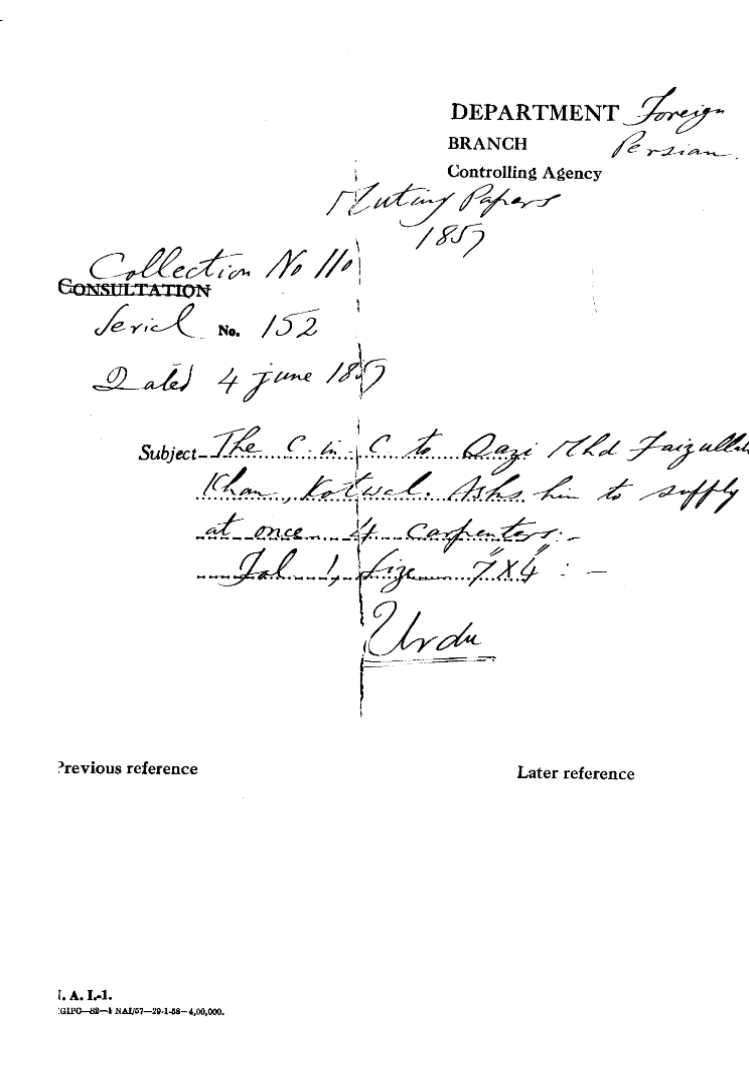 DEPARTMENT Foreign
BRANCH Persian.
Controlling Agency
Mutiny Papers
1857
Collection No 110
CONSULTATION
Serial No. 152
Dated 4 june 1857
Subject The C. in. C to Qazi Mhd Faizullah
Khan, Kotwal. Asks him to supply
at once 4 carpenters:-
Fol 1, Size 7"X4" : -
Urdu
Previous reference
Later reference
I. A. I.-1.
GIPC—82—1 NAI/57—29-1-58—4,00,000.